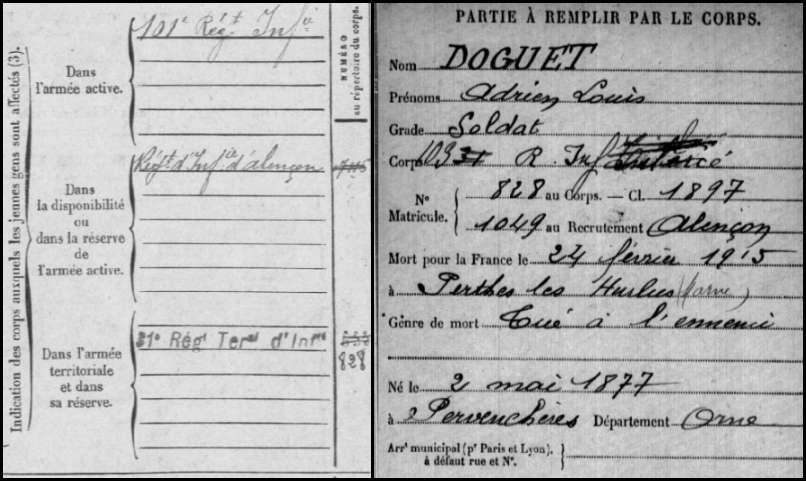 Indication des corps auxquels les jeunes gens sont affectés (3).
Dans
l'armée active.
101e Régt Infie
NUMÉRO
au répertoire du corps.
Dans
la disponibilité
ou
dans la réserve
de
l'armée active.
Régt d'Infie d'alençon
Dans l'armée
territoriale
et dans
sa réserve.
31e Régt Teral d'Infie
828
PARTIE À REMPLIR PAR LE CORPS.
Nom DOGUET
Prénoms Adrien Louis
Grade Soldat
Corps 103 R. Inf
No Matricule. { 828 au Corps. — Cl. 1897
1049 au Recrutement Alençon
Mort pour la France le 24 février 1915
à Perthes les Hurlus (Marne)
Genre de mort Tué à l'ennemi
Né le 2 mai 1877
à Pervenchères Département Orne
Arrt municipal (pr Paris et Lyon),
à défaut rue et No.